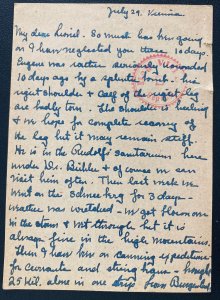 July 29. Vienna
My dear Lionel. So much has been going
on I have neglected you these days.
Eugen was rather seriously wounded
10 days ago by a splinter bomb - his
right shoulder & calf of the right leg
are badly torn. The shoulder is healing
& we hope for complete recovery of
the leg but it may remain stiff.
He is in the Rudolfs Sanitarium here
under Dr. Böhler & of course we can
visit him often. Then last week we
went on the Schneeberg for 3 days -
weather was wretched - we got blown over
in the storm & wet through but it is
always fine in the high mountains.
Then I have been on canning expeditions
for currants and string beans - brought
25 kil. alone in one trip from Burgenland